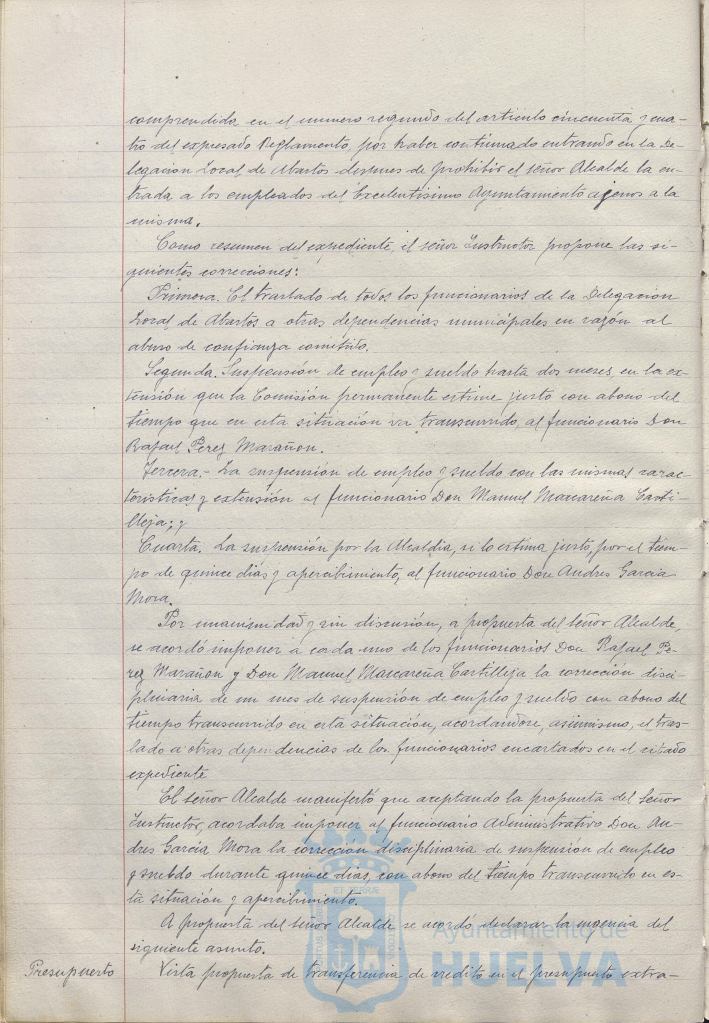 comprendida en el numero segundo del articulo cincuenta y cua-
tro del expresado Reglamento, por haber continuado entrando en la De-
legación Local de Abastos despues de prohibir el señor Alcalde la en-
trada a los empleados del Excelentisimo Ayuntamiento ajenos a la
misma.
Como resumen del expediente, el señor Instructor propone las si-
guientes correcciones:
Primera. El traslado de todos los funcionarios de la Delegación
Local de Abastos a otras dependencias municipales en razón al
abuso de confianza cometido.
Segunda. Suspensión de empleo y sueldo hasta dos meses en la ex-
tensión que la Comisión permanente estime justo con abono del
tiempo que en esta situación va transcurrido, al funcionario Don
Rafael Perez Marañon.
Tercera.- La suspensión de empleo y sueldo con las mismas carac-
teristicas y extensión al funcionario Don Manuel Mascareña Casti-
lleja; y
Cuarta. La suspensión por la Alcaldia, si lo estima justo, por el tiem-
po de quince días y apercibimiento, al funcionario Don Andres Garcia
Mora.
Por unanimidad y sin discusión, a propuesta del señor Alcalde,
se acordó imponer a cada uno de los funcionarios Don Rafael Pe-
rez Marañon y Don Manuel Mascareña Castilleja la corrección disci-
plinaria de un mes de suspensión de empleo y sueldo con abono del
tiempo transcurrido en esta situación, acordandose, asimismo, el tras-
lado a otras dependencias de los funcionarios encartados en el citado
expediente
El señor Alcalde manifestó que aceptando la propuesta del Señor
Instructor, acordaba imponer al funcionario Administrativo Don An-
dres Garcia Mora la corrección disciplinaria de suspensión de empleo
y sueldo durante quince días, con abono del tiempo transcurrido en es-
ta situación y apercibimiento.
A propuesta del señor Alcalde se acordó declarar la urgencia del
siguiente asunto.
Presupuesto Vista propuesta de transferencia de credito en el presupuesto extra-
Ayuntamiento de
HUELVA